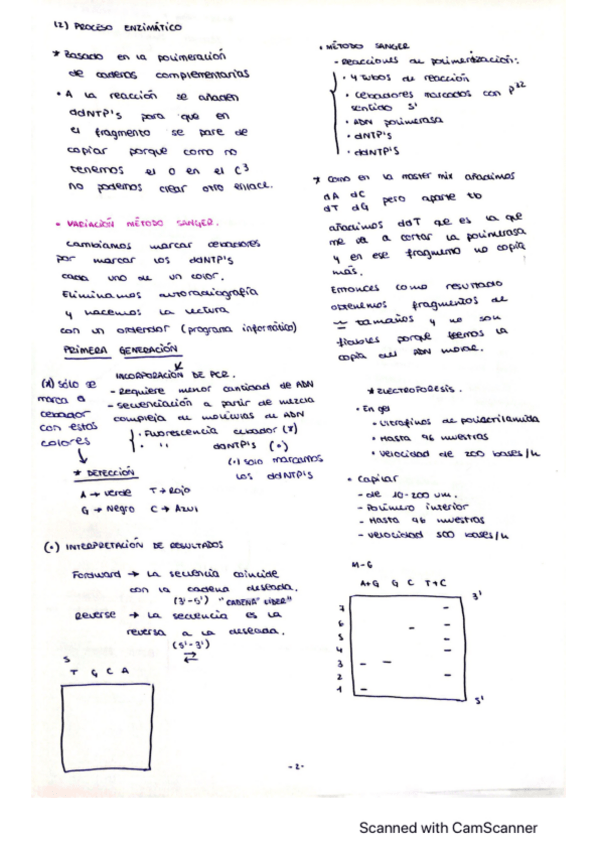 (2) PROCESO ENZIMÁTICO
* Basado en la polimeración
de cadenas complementarias
• A la reacción se añaden
ddNTP's para que en
el fragmento se pare de
copiar porque como no
tenemos el O en el C3
no podemos crear otro enlace.
• VARIACIÓN MÉTODO SANGER.
Cambiamos marcar cebadores
por marcar los ddNTP's
cada uno de un color.
Eliminamos autoradiografía
y hacemos la lectura
con un ordenador (programa informático)
PRIMERA GENERACIÓN
INCORPORACIÓN DE PCR.
- Requiere menor cantidad de ADN
- secuenciación a partir de mezcla
compleja de moléculas de ADN
• Fluorescencia cebador (*)
• '' ddNTP'S (•)
(•) solo marcamos
los ddNTP'S
(*) sólo se
marca a
cebador
con estos
colores
* DETECCIÓN
A → Verde T → Rojo
G → Negro C → Azul
(•) INTERPRETACIÓN DE RESULTADOS
Fordward → La secuencia coincide
con la cadena deseada.
(3'-5') "CADENA LÍDER"
Reverse → La secuencia es la
reversa a la deseada.
(5'-3')
S
T G C A
• MÉTODO SANGER
- Reacciones de polimerización:
• 4 tubos de reacción
• Cebadores marcados con p32
sentido 5'
• ADN polimerasa
• dNTP'S
• ddNTP'S
* Como en la master mix añadimos
dA dC
dT dG pero aparte tb
añadimos ddT que es la que
me va a cortar la polimerasa
y en ese fragmento no copia
más.
Entonces como resultado
obtenemos fragmentos de
tamaños y no son
fiables porque leemos la
copia del ADN molde.
* ELECTROFORESIS.
• En gel
• Ultrafinos de poliacrilamida
• Hasta 96 muestras
• Velocidad de 200 bases/h
• Capilar
- de 10-200 um.
- Polímero interior
- Hasta 96 muestras
- Velocidad 500 bases/h
M-G
A+G G C T+C
3'
7
6
5
4
3
2
1
5'
-2-
Scanned with CamScanner